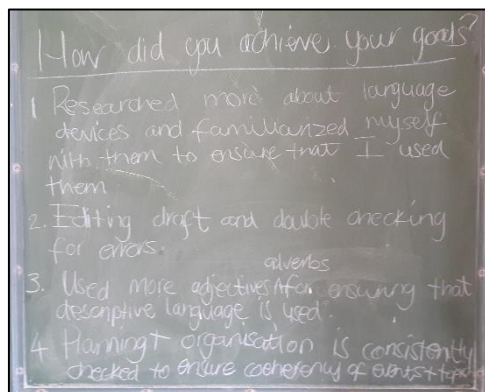 How did you achieve your goals?
1 Researched more about language
devices and familiarized myself
with them to ensure that I used
them
2. Editing draft and double checking
for errors.
adverbs
3. Used more adjectives/for ensuring that
descriptive language is used.
4 Planning + organisation is consistently
checked to ensure coherency of events +